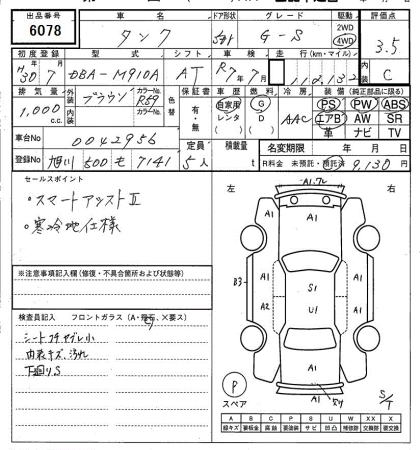 出品番号 車名 ドア形状 グレード 駆動 評価点
6078 タンク 5ドア G-S 2WD 4WD 3.5
初度登録 型式 シフト 車検 走行(km・マイル) 内装
H30年7月 DBA-M910A AT R7年7月 112,132 C
排気量 外装 ブラウン カラーNo. R59 色替 保証書 車歴 燃料 冷房 装備(純正部品に限る)
1,000 c.c. 内装 カラーNo. 有・無 自家用 レンタ G D AAC PS PW ABS
エアB AW SR
革 ナビ TV
車台No 0042956
定員 積載量 名変期限 年 月 日
登録No 旭川 500 も 7141 5人 t R料金 未預託・預託済 9,130円
セールスポイント
・スマートアシストII
・寒冷地仕様
※注意事項記入欄(修復・不具合箇所および状態等)
検査員記入 フロントガラス(A・飛石、X要ス)
シートコゲ ヤブレ小
内装キズ、汚れ
下廻りS
左 右
A1
A1 A1
B3 A1 S1 A1
A2 U1 A1
A1
P
スペア
S/T
A B C P S U W XX X
線キズ 要板金 腐食 要塗装 サビ 凹凸 補修跡 交換跡 要交換